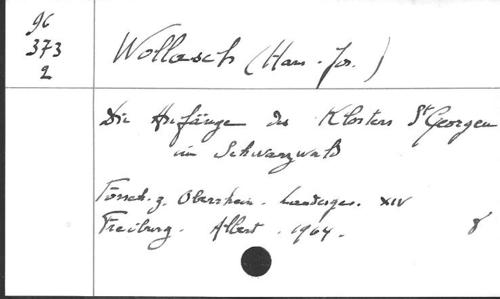 96
373
2
Wollasch (Hans-Jos.)
Die Anfänge des Klosters St Georgen
im Schwarzwald
Forsch. z. Oberrhein. Landesges. XIV
Freiburg. Albert. 1964. 8